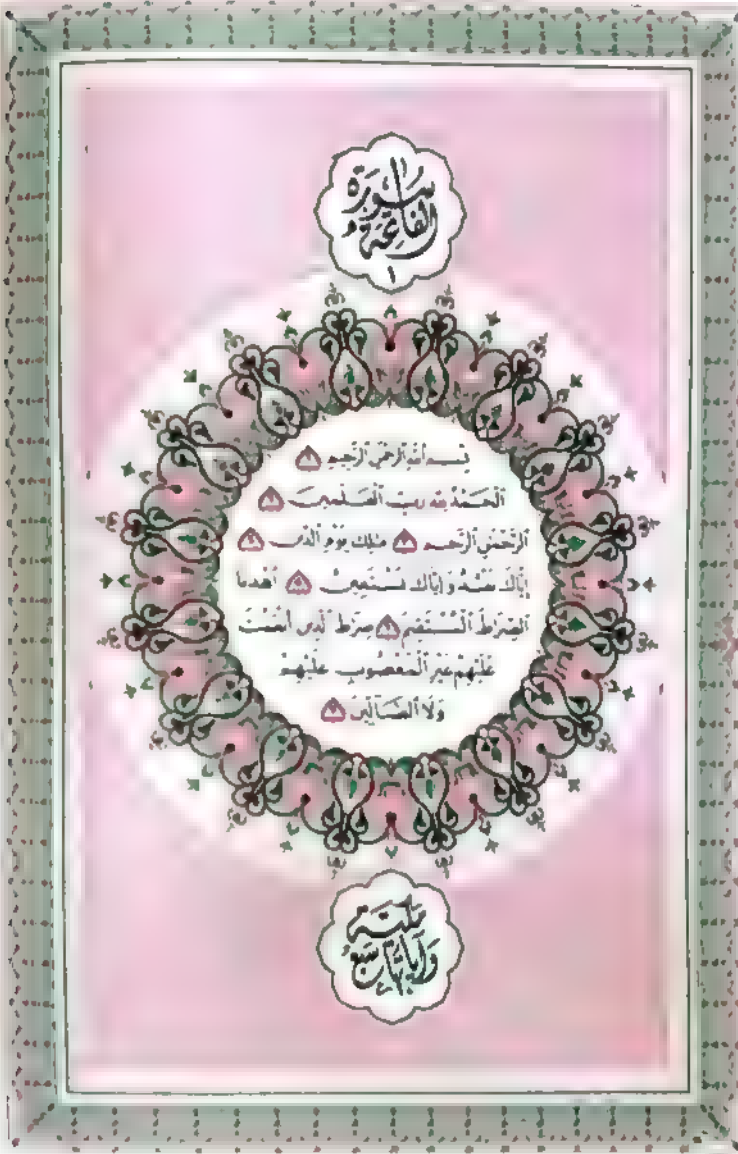 سورة
الفاتحة
١
بِسْمِ ٱللَّهِ ٱلرَّحْمَٰنِ ٱلرَّحِيمِ ١
ٱلْحَمْدُ لِلَّهِ رَبِّ ٱلْعَٰلَمِينَ ٢
ٱلرَّحْمَٰنِ ٱلرَّحِيمِ ٣ مَٰلِكِ يَوْمِ ٱلدِّينِ ٤
إِيَّاكَ نَعْبُدُ وَإِيَّاكَ نَسْتَعِينُ ٥ ٱهْدِنَا
ٱلصِّرَٰطَ ٱلْمُسْتَقِيمَ ٦ صِرَٰطَ ٱلَّذِينَ أَنْعَمْتَ
عَلَيْهِمْ غَيْرِ ٱلْمَغْضُوبِ عَلَيْهِمْ
وَلَا ٱلضَّآلِّينَ ٧
مكية
وآياتها سبع